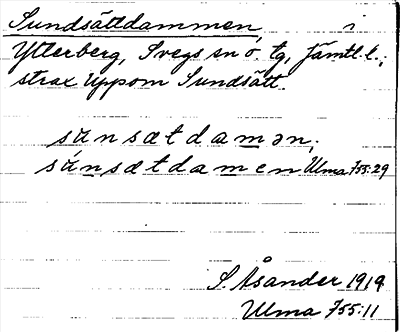 Sundsättdammen, i
Ytterberg, Svegs sn o. tg, Jämtl. l.,
strax uppom Sundsätt.
sùnsætdamən,
sùnsætdamen Ulma 755:29
S. Åsander 1919
Ulma 755:11